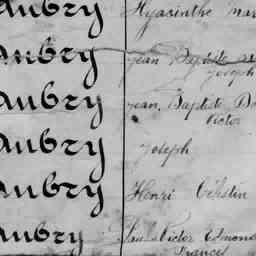 Aubry Hyacinthe Mar
Aubry Jean Baptiste
Joseph
Aubry Jean, Baptiste D
Victor
Aubry Joseph
Aubry Henri Célestin
Aubry Paul Victor Edmond
Francois